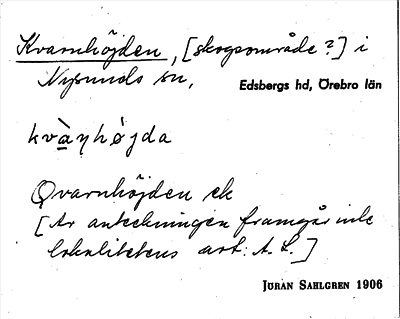 Kvarnhöjden, [skogsområde?] i
Nysunds sn,
Edsbergs hd, Örebro län
kvàṇhøjda
Qvarnhöjden ek
[Av anteckningen framgår inte
lokalitetens art. A. L.]
JÖRAN SAHLGREN 1906